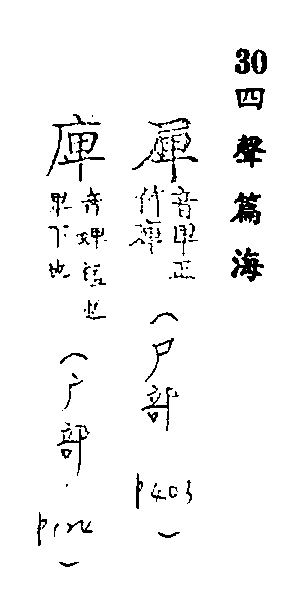 30 四聲篇海
音卑正
作庳
（尸部 p403）
庳
音婢短也
卑下也
（广部 p124）